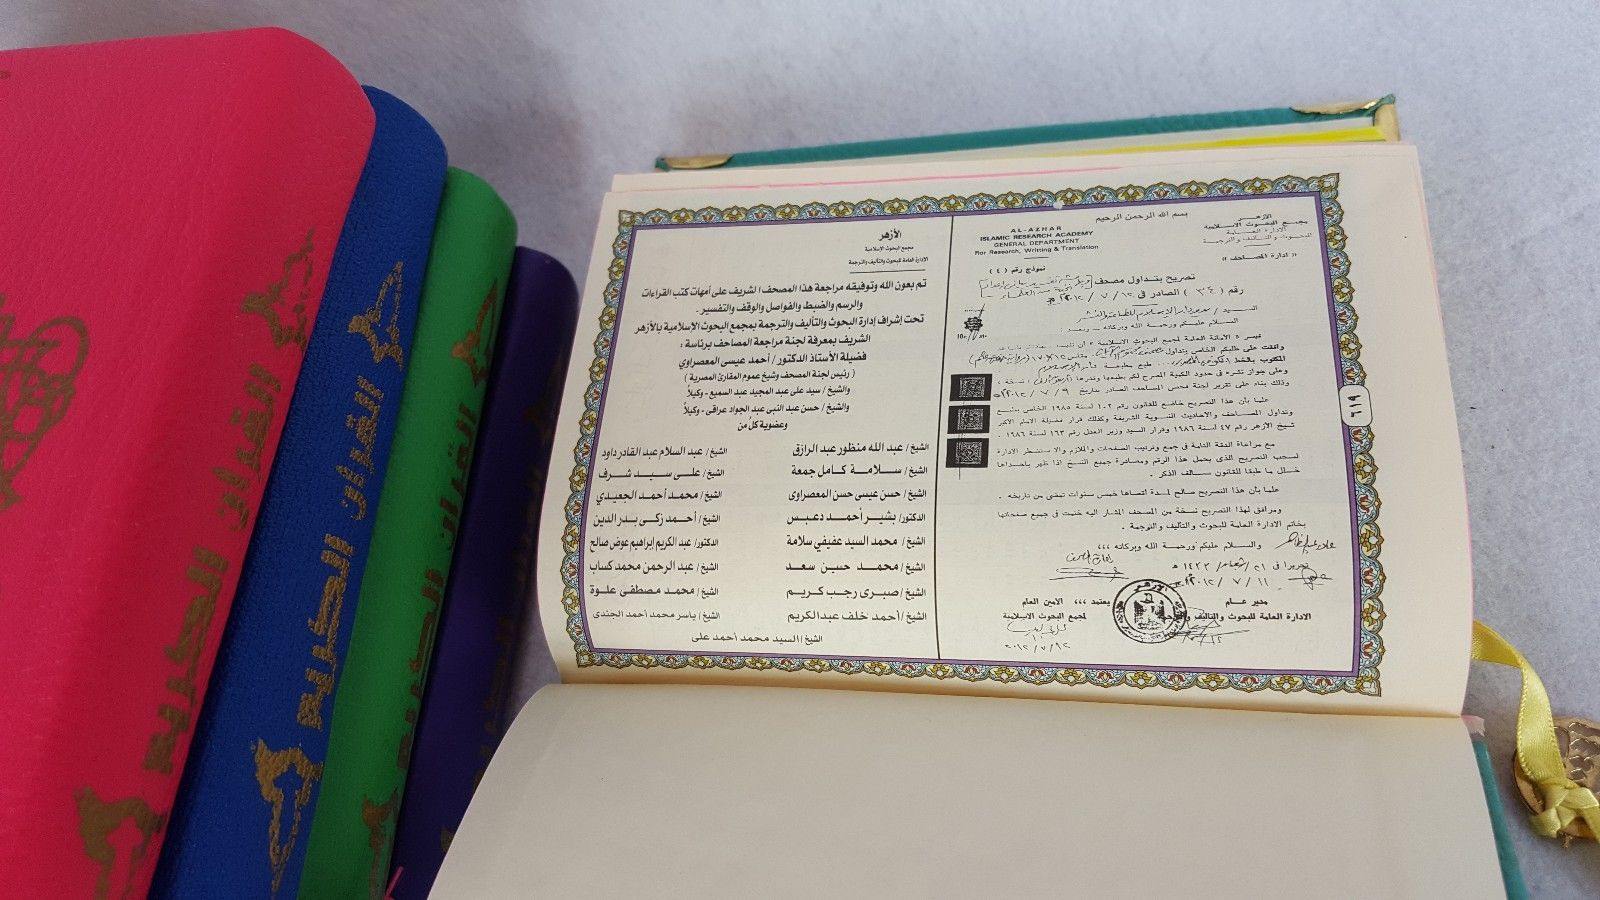 القرآن الكريم
القرآن الكريم
القرآن الكريم
بسم الله الرحمن الرحيم
الأزهر
مجمع البحوث الاسلامية
الادارة العامة
للبحوث والتأليف والترجمة
« ادارة المصاحف »
AL-AZHAR
ISLAMIC RESEARCH ACADEMY
GENERAL DEPARTMENT
For Research, Writting & Translation
نموذج رقم (٤)
تصريح بتداول مصحف
رقم ( ٣٤ ) الصادر فى ١٢ / ٧ / ٢٠١٢ م
السيد /
السلام عليكم ورحمة الله وبركاته - وبعد :
الامانة العامة لمجمع البحوث الاسلامية
وافقت على طلبكم الخاص بتداول
المكتوب بالخط طبع بمطبعة
وعلى جواز نشره فى حدود الكمية المصرح لكم بطبعها وقدرها نسخة ،
وذلك بناء على تقرير لجنة فحص المصاحف الصادر بتاريخ ٩ / ٧ / ٢٠١٢
علما بأن هذا التصريح خاضع للقانون رقم ١٠٢ لسنة ١٩٨٥ الخاص بتنظيم
وتداول المصاحف والاحاديث النبوية الشريفة وكذلك قرار فضيلة الامام الاكبر
شيخ الأزهر رقم ٤٧ لسنة ١٩٨٦ وقرار السيد وزير العدل رقم ١٦٣ لسنة ١٩٨٦ .
مع مراعاة الدقة التامة فى جمع وترتيب الصفحات والملازم والا ستضطر الادارة
لسحب التصريح الذى يحمل هذا الرقم ومصادرة جميع النسخ اذا ظهر باحداها
خلل ما طبقا للقانون سالف الذكر .
علما بأن هذا التصريح صالح لمدة أقصاها خمس سنوات تمضى من تاريخه .
ومرافق لهذا التصريح نسخة من المصحف المشار اليه ختمت فى جميع صفحاتها
بخاتم الادارة العامة للبحوث والتأليف والترجمة .
والسلام عليكم ورحمة الله وبركاته ،،،
تحريرا فى ٢١ / شعبان / ١٤٣٣ هـ
١١ / ٧ / ٢٠١٢
مدير عام
الادارة العامة للبحوث والتأليف والترجمة
يعتمد ،،، الامين العام
لمجمع البحوث الاسلامية
٦١٩
الأزهر
مجمع البحوث الإسلامية
الإدارة العامة للبحوث والتأليف والترجمة
تم بعون الله وتوفيقه مراجعة هذا المصحف الشريف على أمهات كتب القراءات
والرسم والضبط والفواصل والوقف والتفسير .
تحت إشراف إدارة البحوث والتأليف والترجمة بمجمع البحوث الإسلامية بالأزهر
الشريف بمعرفة لجنة مراجعة المصاحف برئاسة :
فضيلة الأستاذ الدكتور / أحمد عيسى المعصراوي
( رئيس لجنة المصحف وشيخ عموم المقارئ المصرية )
والشيخ / سيد على عبد المجيد عبد السميع - وكيلاً
والشيخ / حسن عبد النبى عبد الجواد عراقى - وكيلاً
وعضوية كل من
الشيخ / عبد الله منظور عبد الرازق الشيخ / عبد السلام عبد القادر داود
الشيخ / سلامة كامل جمعة الشيخ / على سيد شرف
الشيخ / حسن عيسى حسن المعصراوى الشيخ / محمد أحمد الجعيدي
الدكتور/ بشير أحمد دعبس الشيخ / أحمد زكى بدر الدين
الشيخ / محمد السيد عفيفي سلامة الدكتور/ عبد الكريم إبراهيم عوض صالح
الشيخ / محمد حسين سعد الشيخ / عبد الرحمن محمد كساب
الشيخ / صبرى رجب كريم الشيخ / محمد مصطفى علوة
الشيخ / أحمد خلف عبد الكريم الشيخ / ياسر محمد أحمد الجندى
الشيخ / السيد محمد أحمد على